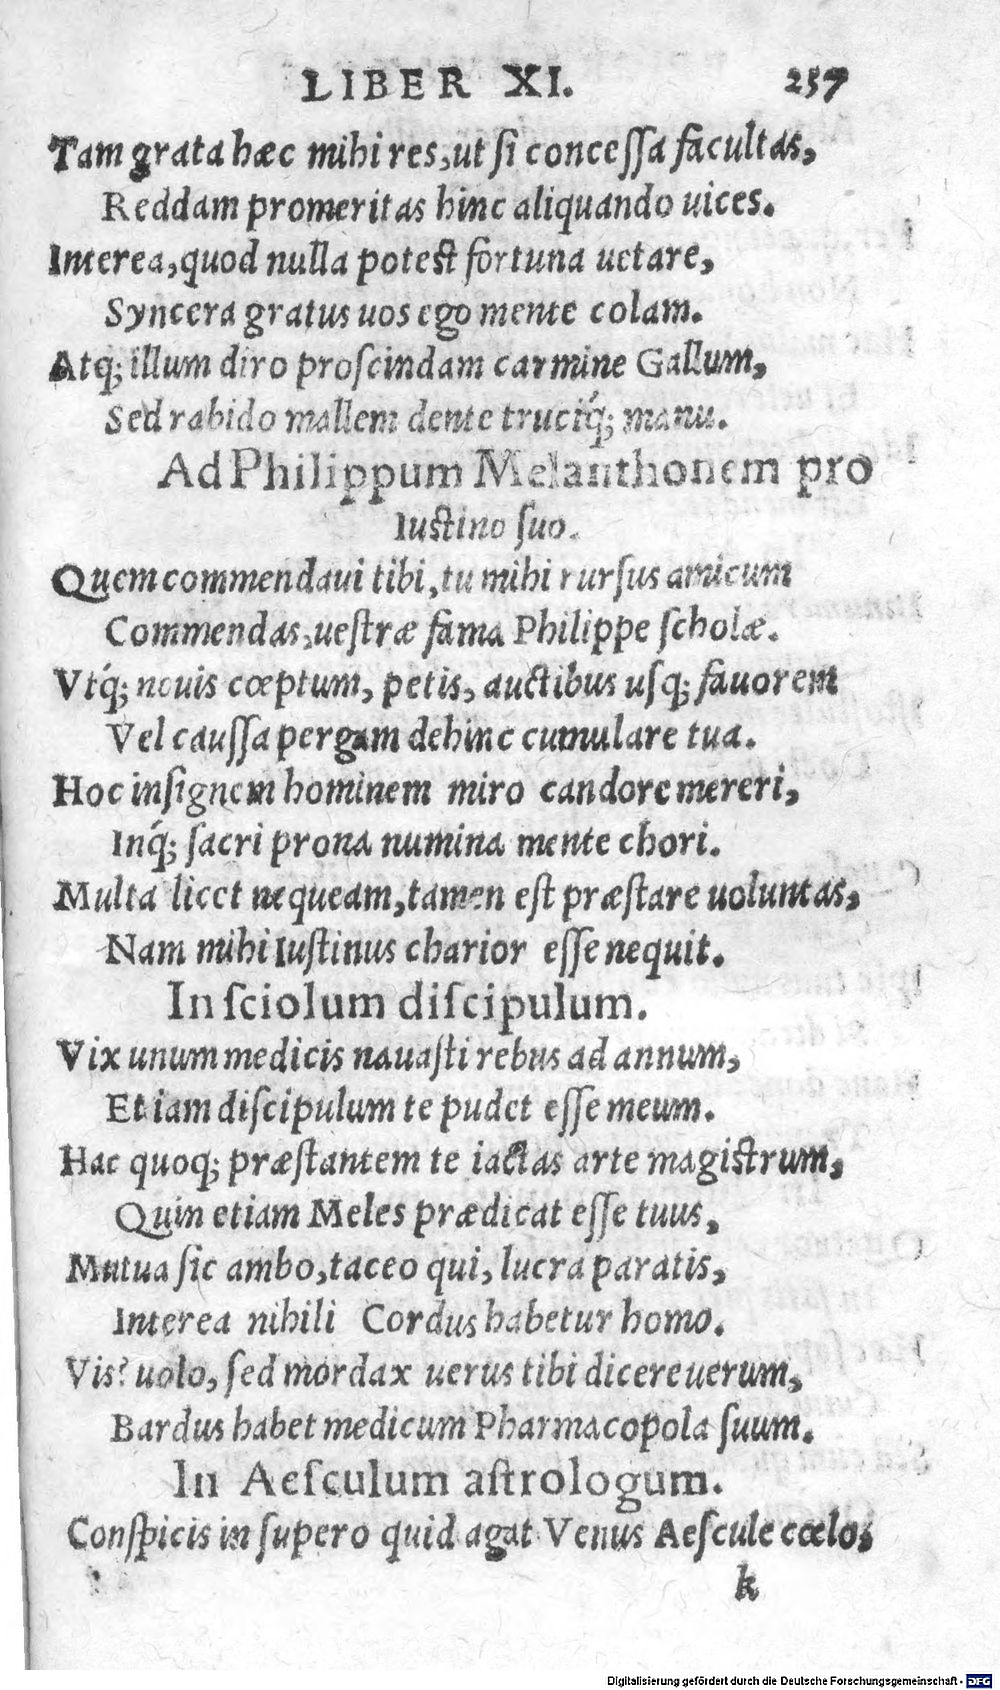 LIBER XI. 257
Tam grata hæc mihi res, ut si concessa facultas,
Reddam promeritas hinc aliquando uices.
Interea, quod nulla potest fortuna uetare,
Syncera gratus uos ego mente colam.
Atq; illum diro proscindam carmine Gallum,
Sed rabido mallem dente truciq́; manu.
Ad Philippum Melanthonem pro
Iustino suo.
Quem commendaui tibi, tu mihi rursus amicum
Commendas, uestræ fama Philippe scholæ.
Vtq́; nouis cœptum, petis, auctibus usq; fauorem
Vel caussa pergam dehinc cumulare tua.
Hoc insignem hominem miro candore mereri,
Inq́; sacri prona numina mente chori.
Multa licet nequeam, tamen est præstare uoluntas,
Nam mihi Iustinus charior esse nequit.
In sciolum discipulum.
Vix unum medicis nauasti rebus ad annum,
Etiam discipulum te pudet esse meum.
Hac quoq; præstantem te iactas arte magistrum,
Quin etiam Meles prædicat esse tuus,
Mutua sic ambo, taceo qui, lucra paratis,
Interea nihili Cordus habetur homo.
Vis? uolo, sed mordax uerus tibi dicere uerum,
Bardus habet medicum Pharmacopola suum.
In Aesculum astrologum.
Conspicis in supero quid agat Venus Aescule cœlo,
k
Digitalisierung gefördert durch die Deutsche Forschungsgemeinschaft - DFG